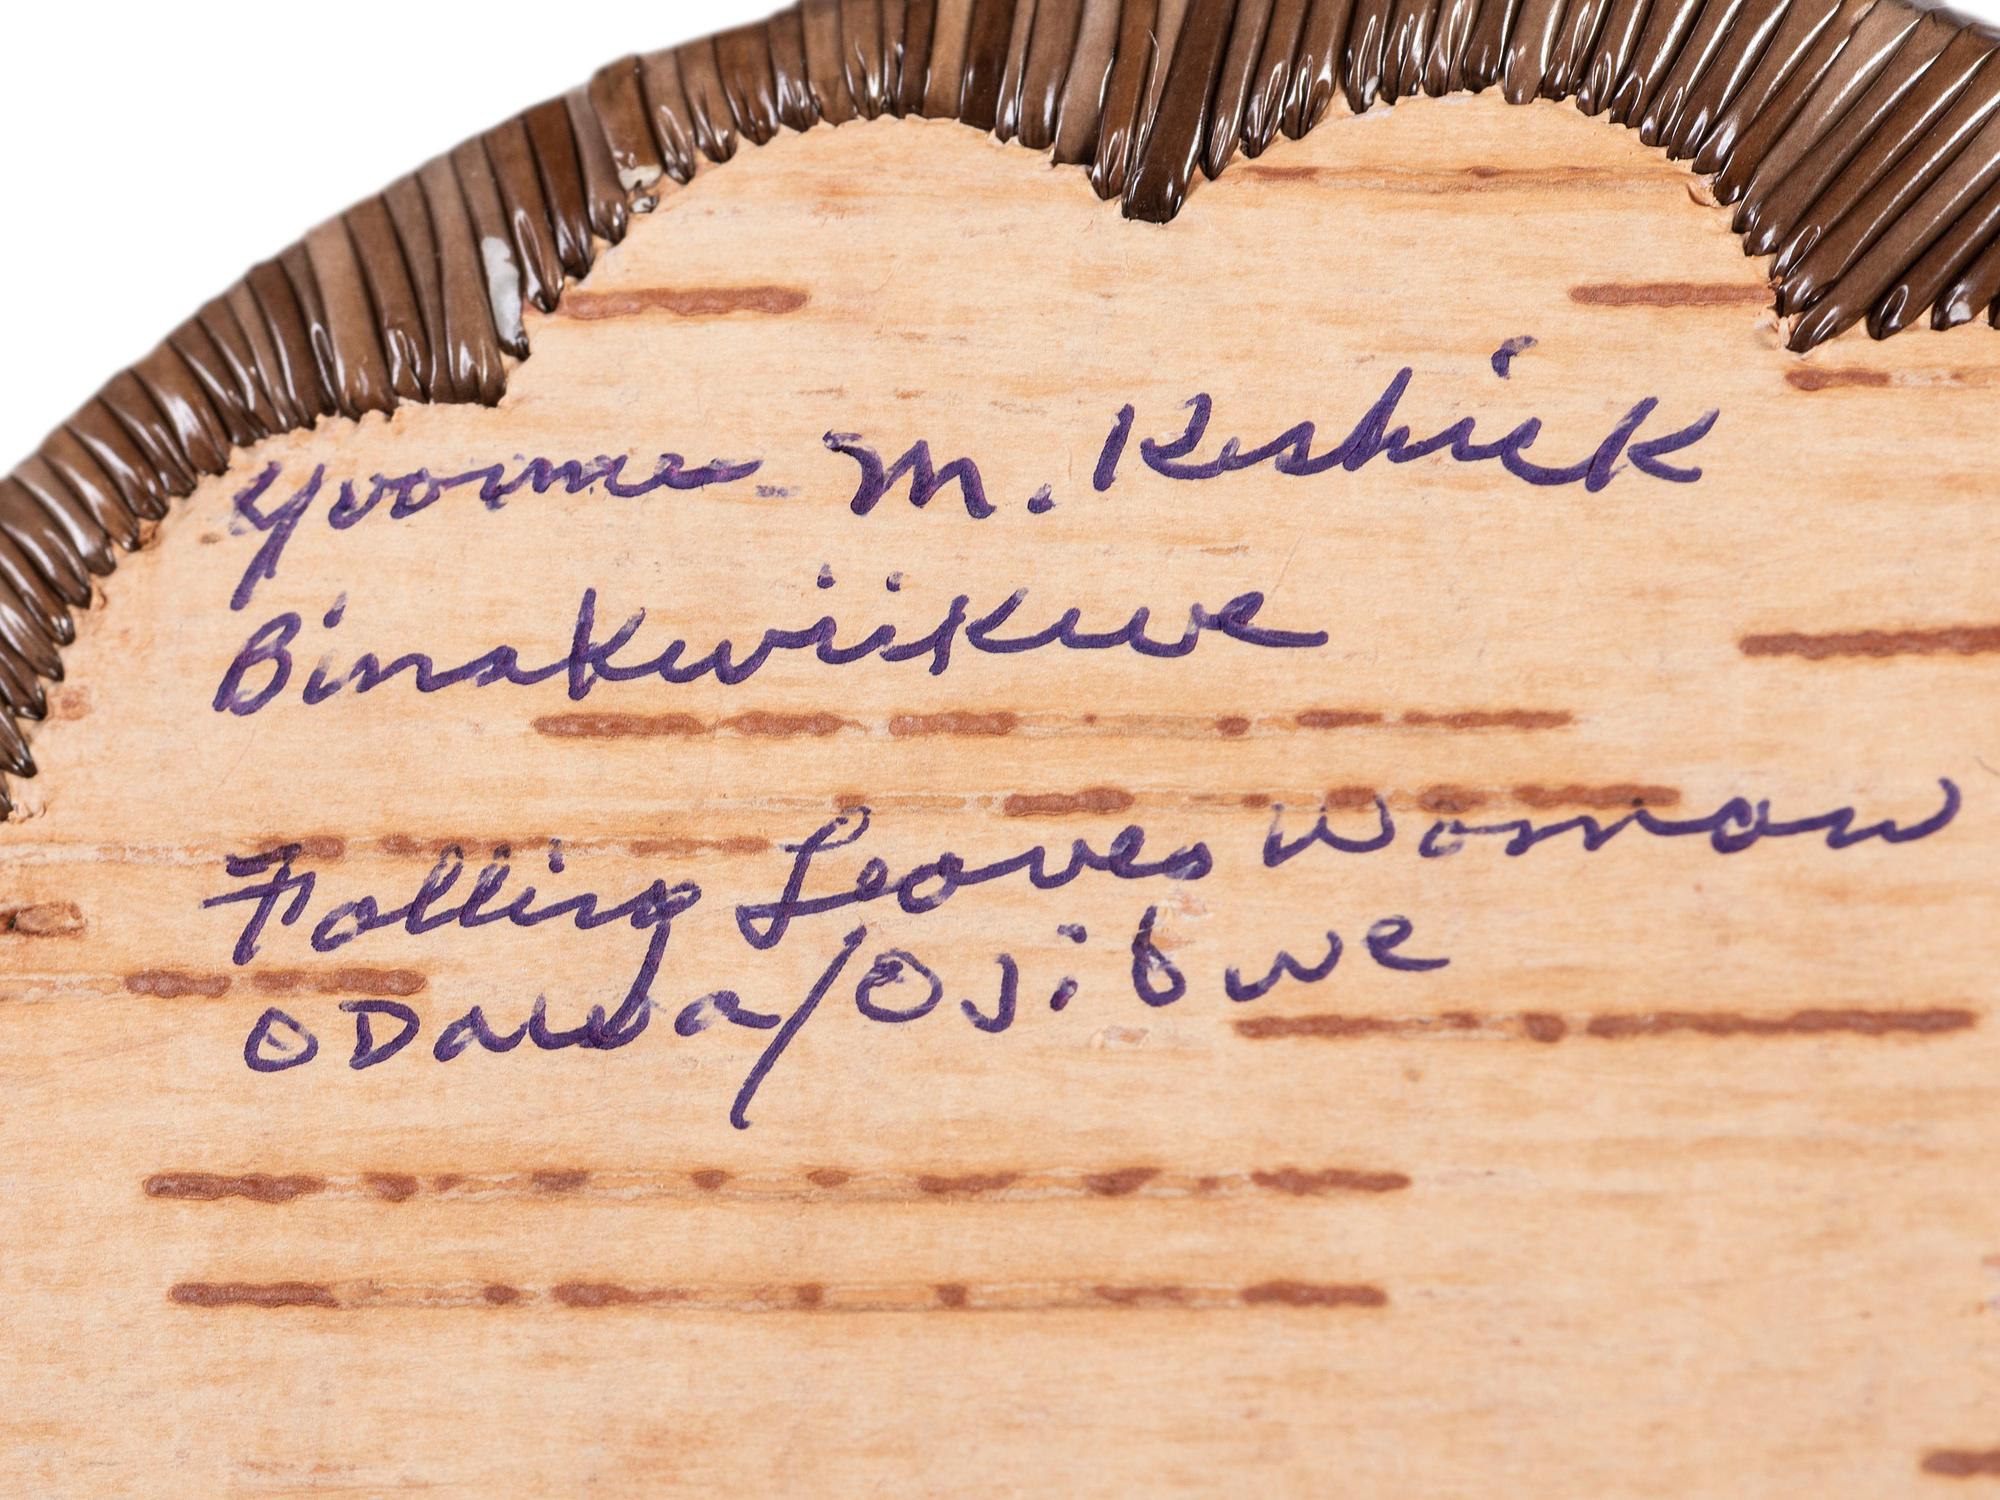 Yvonne M. Keshick
Binakwiikwe
Falling Leaves Woman
ODawa/OJibwe